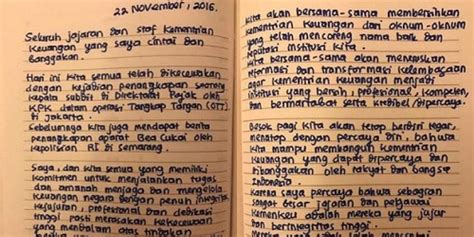 22 November, 2016.
Seluruh jajaran dan staf Kementrian
Keuangan yang saya cintai dan
banggakan.
Hari ini kita semua telah dikecewakan
dengan kejadian penangkapan seorang
kepala subdit di Direktorat Pajak oleh
KPK dalam operasi Tangkap Tangan (OTT)
di Jakarta.
Sebelumnya kita juga mendapat berita
penangkapan aparat Bea Cukai oleh
Kepolisian RI di Semarang.
Saya, dan kita semua yang memiliki
komitmen untuk menjalankan tugas
dan amanah menjaga dan mengelola
keuangan negara dengan penuh integritas,
kejujuran, profesional dan dedikasi
tinggi pasti merasakan kekecewaan
yang mendalam atas tindakan
Kita akan bersama-sama membersihkan
Kementrian Keuangan dari oknum-oknum
yang telah mencoreng nama baik dan
reputasi institusi kita.
Kita bersama-sama akan meneruskan
reformasi dan transformasi kelembagaan
agar Kementrian Keuangan menjadi
institusi yang bersih, profesional, kompeten,
dan bermartabat serta kredibel/dipercaya.
Besok pagi kita akan tetap berdiri tegar,
menatap dengan percaya diri, bahwa
kita mampu membangun Kementrian
Keuangan yang dapat dipercaya dan
dibanggakan oleh rakyat dan bangsa
Indonesia.
Karena saya percaya bahwa sebagian
sangat besar jajaran dan pegawai
Kemenkeu adalah mereka yang jujur
dan berintegritas tinggi.
adalah mereka yang